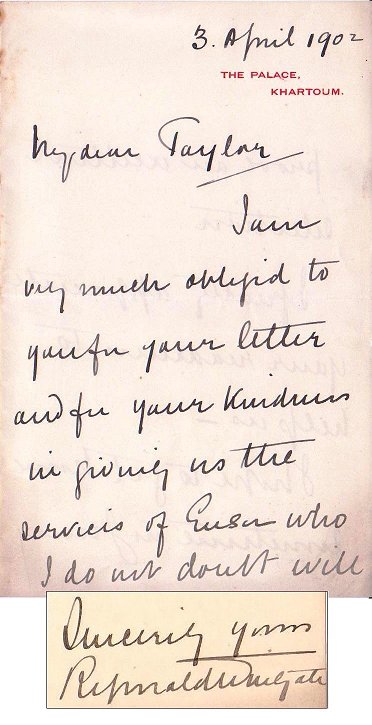 3. April 1902
THE PALACE,
KHARTOUM.
My dear Taylor
I am
very much obliged to
you for your letter
and for your kindness
in giving us the
services of who
I do not doubt will
Sincerely yours
Reginald Wingate